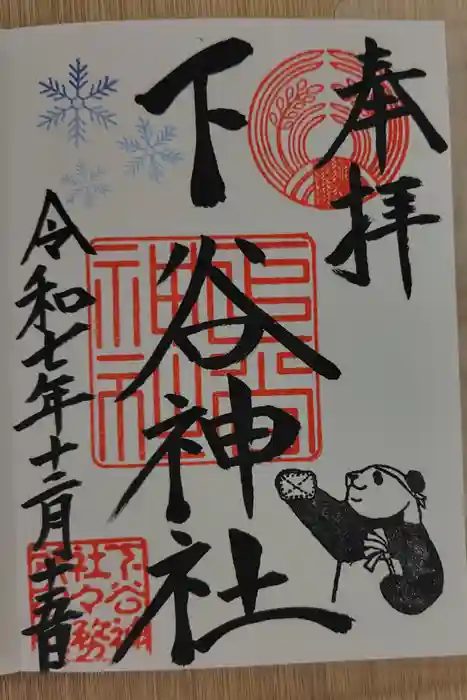 奉拝
下谷神社
令和七年十二月十五日
下谷神
社々務